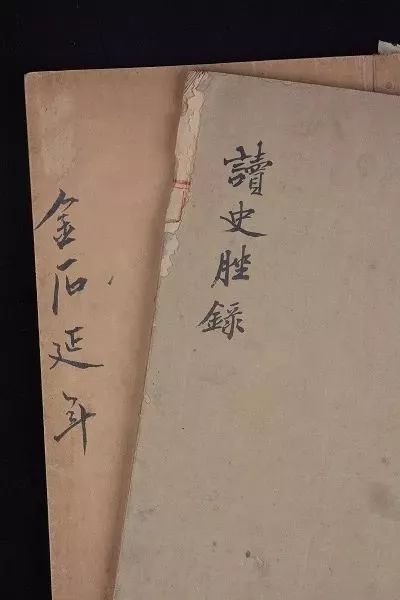 讀史脞錄
金石延年